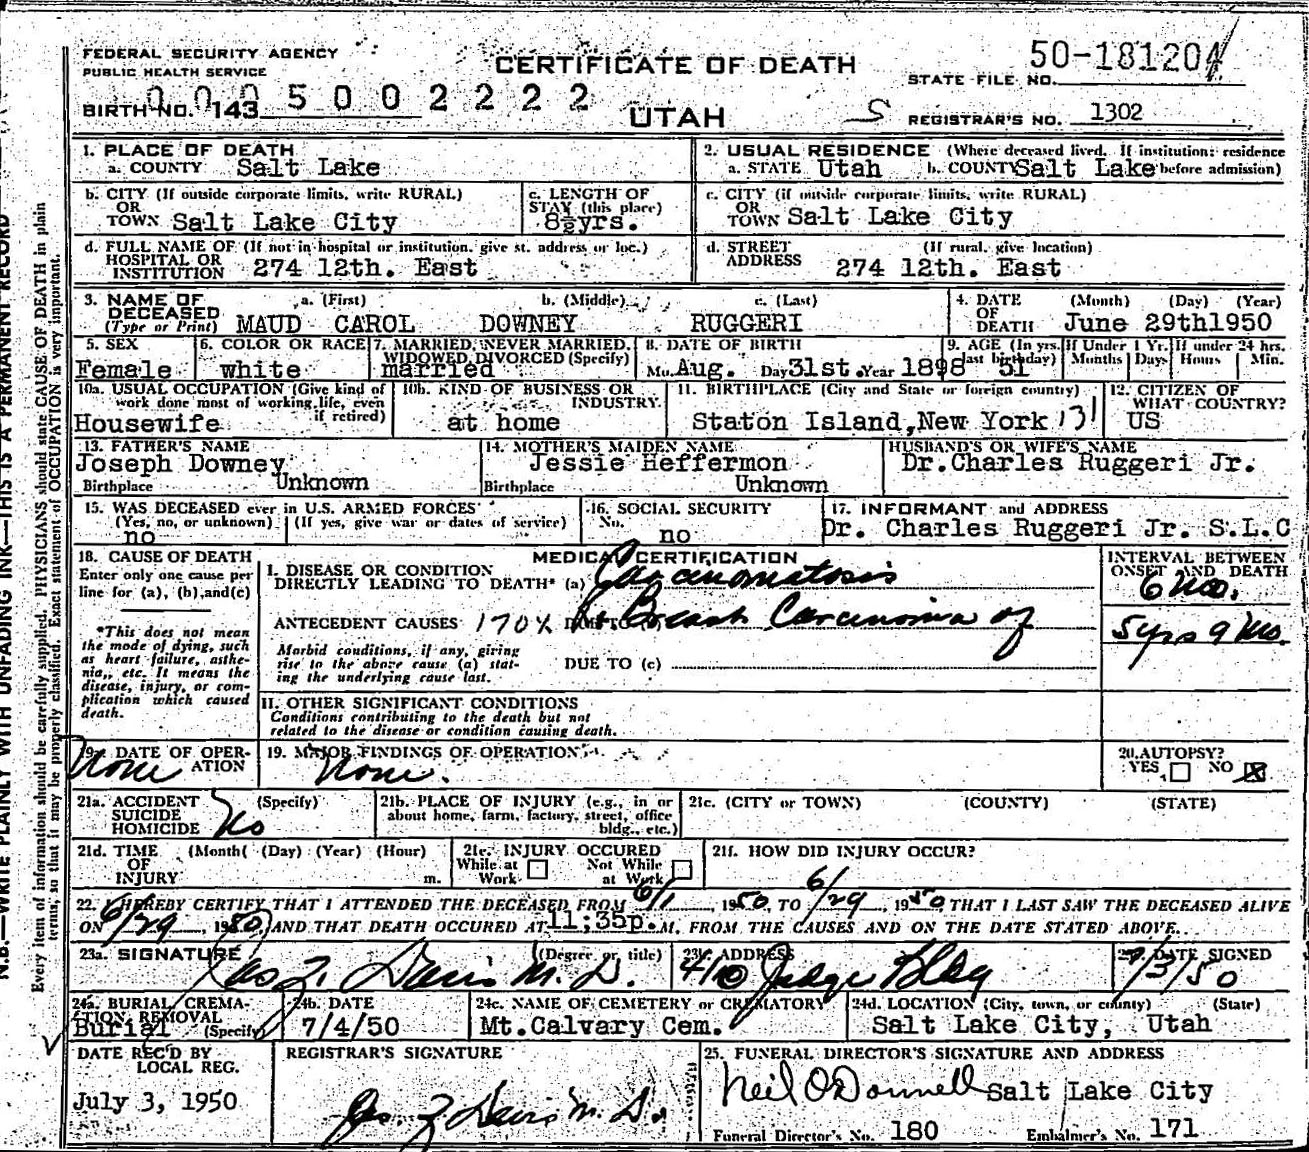 FEDERAL SECURITY AGENCY
PUBLIC HEALTH SERVICE
CERTIFICATE OF DEATH
50-181204
STATE FILE NO.
BIRTH NO. 143
0005002222
UTAH
S
REGISTRAR'S NO. 1302
1. PLACE OF DEATH
a. COUNTY Salt Lake
2. USUAL RESIDENCE (Where deceased lived. If institution: residence
a. STATE Utah b. COUNTY Salt Lake before admission)
b. CITY (If outside corporate limits, write RURAL)
OR
TOWN Salt Lake City
c. LENGTH OF
STAY (this place)
8½yrs.
c. CITY (if outside corporate limits, write RURAL)
OR
TOWN Salt Lake City
d. FULL NAME OF (If not in hospital or institution, give st. address or loc.)
HOSPITAL OR
INSTITUTION 274 12th. East
d. STREET (If rural, give location)
ADDRESS 274 12th. East
3. NAME OF a. (First) b. (Middle) c. (Last)
DECEASED
(Type or Print) MAUD CAROL DOWNEY RUGGERI
4. DATE (Month) (Day) (Year)
OF
DEATH June 29th1950
5. SEX
Female
6. COLOR OR RACE
white
7. MARRIED, NEVER MARRIED,
WIDOWED, DIVORCED (Specify)
married
8. DATE OF BIRTH
Mo. Aug. Day 31st. Year 1898
9. AGE (In yrs. last birthday) 51
If Under 1 Yr. Months Days
If under 24 hrs. Hours Min.
10a. USUAL OCCUPATION (Give kind of
work done most of working life, even
if retired)
Housewife
10b. KIND OF BUSINESS OR
INDUSTRY
at home
11. BIRTHPLACE (City and State or foreign country)
Staton Island,New York 131
12. CITIZEN OF
WHAT COUNTRY?
US
13. FATHER'S NAME
Joseph Downey
Birthplace Unknown
14. MOTHER'S MAIDEN NAME
Jessie Heffermon
Birthplace Unknown
HUSBAND'S OR WIFE'S NAME
Dr.Charles Ruggeri Jr.
15. WAS DECEASED ever in U.S. ARMED FORCES
(Yes, no, or unknown) (If yes, give war or dates of service)
no
16. SOCIAL SECURITY
No.
no
17. INFORMANT and ADDRESS
Dr. Charles Ruggeri Jr. S.L.C
18. CAUSE OF DEATH
Enter only one cause per
line for (a), (b), and (c)
*This does not mean
the mode of dying, such
as heart failure, asthe-
nia, etc. It means the
disease, injury, or com-
plication which caused
death.
MEDICAL CERTIFICATION
I. DISEASE OR CONDITION
DIRECTLY LEADING TO DEATH* (a) Carcinomatosis
ANTECEDENT CAUSES 170X DUE TO (b) Breast Carcinoma of
Morbid conditions, if any, giving
rise to the above cause (a) stat-
ing the underlying cause last.
DUE TO (c)
INTERVAL BETWEEN
ONSET AND DEATH
6 mos.
5 yrs 9 mos.
II. OTHER SIGNIFICANT CONDITIONS
Conditions contributing to the death but not
related to the disease or condition causing death.
19a. DATE OF OPER-
ATION
None
19. MAJOR FINDINGS OF OPERATION
None.
20. AUTOPSY?
YES NO X
21a. ACCIDENT (Specify)
SUICIDE
HOMICIDE No
21b. PLACE OF INJURY (e.g., in or
about home, farm, factory, street, office
bldg., etc.)
21c. (CITY or TOWN) (COUNTY) (STATE)
21d. TIME (Month( (Day) (Year) (Hour)
OF
INJURY m.
21e. INJURY OCCURED
While at Work Not While at Work
21f. HOW DID INJURY OCCUR?
22. I HEREBY CERTIFY THAT I ATTENDED THE DECEASED FROM 6/1, 1950, TO 6/29, 1950, THAT I LAST SAW THE DECEASED ALIVE
ON 6/29, 1950, AND THAT DEATH OCCURED AT 11;35p.M. FROM THE CAUSES AND ON THE DATE STATED ABOVE.
23a. SIGNATURE (Degree or title)
Jas Z. Davis M.D.
23b. ADDRESS
410 Judge Bldg
23c. DATE SIGNED
7/3/50
24a. BURIAL, CREMA-
TION, REMOVAL
Burial (Specify)
24b. DATE
7/4/50
24c. NAME OF CEMETERY or CREMATORY
Mt.Calvary Cem.
24d. LOCATION (City, town, or county) (State)
Salt Lake City, Utah
DATE REC'D BY
LOCAL REG.
July 3, 1950
REGISTRAR'S SIGNATURE
Jas. Z Davis M.D.
25. FUNERAL DIRECTOR'S SIGNATURE AND ADDRESS
Neil O'Donnell Salt Lake City
Funeral Director's No. 180 Embalmer's No. 171
N.B.—WRITE PLAINLY WITH UNFADING INK—THIS IS A PERMANENT RECORD
Every item of information should be carefully supplied. PHYSICIANS should state CAUSE OF DEATH in plain
terms, so that it may be properly classified. Exact statement of OCCUPATION is very important.